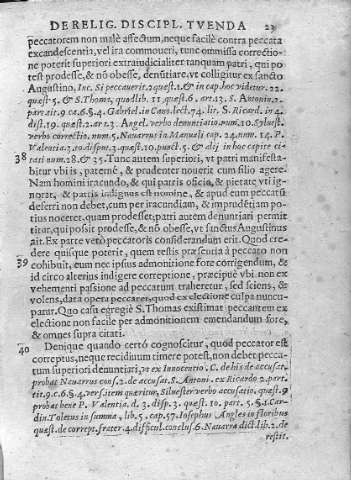 DE RELIG. DISCIPL. TVENDA 23
peccatorem non malè affectum, neque facilè contra peccata
excandescentia, vel ira commoueri, tunc omissa correctio-
ne poterit superiori extraiudicialiter tanquam patri, qui po
test prodesse, & nō obesse, denūtiare. vt colligitur ex sancto
Augustino, Inc. Si peccauerit. 2. quæst. 1. & in cap. hoc videtur. 22.
quæst. 5. & S. Thoma, quodlib. 11. quæst. 6. art. 13. S. Antonin. 2.
part. tit. 9. ca. 6. §. 4. Gabriel. in Cano. lect. 74. lit. S. Ricard. in 4.
dist. 19. quæst. 2. ar. 13. Angel. verbo denuntiatio. num. 10. Syluest.
verbo correctio. num. 5. Nauarrus in Manuali cap. 24. num. 14. P.
Valentia. 3. to. dispu. 3. quæst. 10. punct. 5. & alij in hoc capite ci-
38 tati num. 28. & 35. Tunc autem superiori, vt patri manifesta-
bitur vbi is, paternè, & prudenter nouerit cum filio agere.
Nam homini iracundo, & qui patris officia, & pietatē vti ig-
norat, & patris indignus est nomine, & apud eum peccata
deferri non debet, cum per iracundiam, & imprudētiam po
tius noceret. quam prodesset; patri autem denuntiari permit
titur, qui possit prodesse, & nō obesse, vt sanctus Augustinus
ait. Ex parte verò peccatoris considerandum erit. Quod cre-
dere quisque poterit, quem testis præsentia à peccato non
39 cohibuit, eum nec ipsius admonitione fore corrigendum, &
id circo alterius indigere correptione, præcipuè vbi non ex
vehementi passione ad peccatum traheretur, sed sciens, &
volens, data opera peccaret, quod ex electione culpa nuncu-
patur. Quo casu egregiè S. Thomas existimat peccantem ex
electione non facile per admonitionem emendandum fore,
& omnes supra citati.
40 Denique quando certò cognoscitur, quod peccator est
correptus, neque recidiuum timere potest, non debet pecca-
tum superiori denuntiari, vt ex Innocentio. C. de his de accusat.
probat Nauarrus cons. 2. de accusat. S. Antoni. ex Ricardo 2. part.
tit. 9. c. 6. §. 4. vers. item quæritur, Siluester verbo accusatio. quæst. 9
probat bene P. Valentia. d. 3. disp. 3. quæst. 10. part. 5. §. 1. Car-
din. Toletus in summa, lib. 5. cap. 57. Iosephus Angles in floribus
quæst. de corrept. frater. 4. difficul. conclus. 6. Nauarra dict. lib. 2. de
restit.